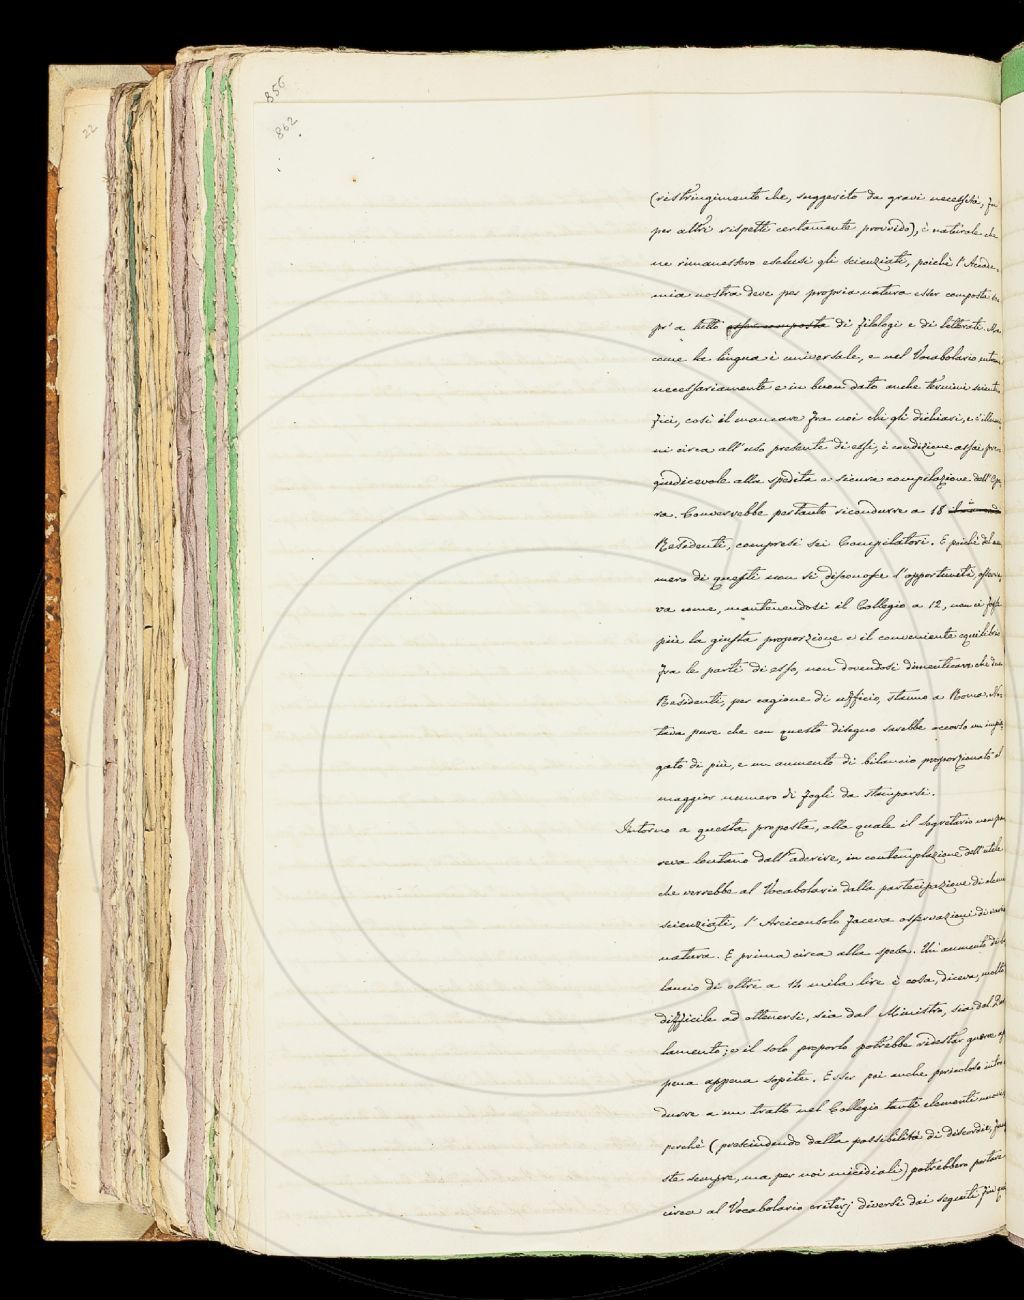 22
856
862
(ristringimento che, suggerito da gravi necessità, fu
per altri rispetti certamente provvido), è naturale che
ne rimanessero esclusi gli scienziati, poichè l'Accade-
mia nostra deve per propria natura esser composta in
pr' a tutto esser composta di filologi e di letterati. Ma
come la lingua è universale, e nel Vocabolario entran
necessariamente e in buon dato anche termini scienti-
fici, così il mancare fra noi chi gli dichiari, e c'illumi-
ni circa all'uso presente di essi, è condizione assai pre-
giudicevole alla spedita e sicura compilazione dell'Ope-
ra. Converrebbe pertanto ricondurre a 18
Residenti, compresi sei Compilatori. E poichè del nu-
mero di questi non si disconosce l'opportunità, osserva-
va come, mantenendosi il Collegio a 12, non ci fosse
più la giusta proporzione e il conveniente equilibrio
fra le parti di esso, non dovendosi dimenticare che due
Residenti, per cagione di ufficio, stanno a Roma. No-
tava pure che con questo disegno sarebbe occorso un impie-
gato di più, e un aumento di bilancio proporzionato al
maggior numero di fogli da stamparsi.
Intorno a questa proposta, alla quale il Segretario non pa-
reva lontano dall'aderire, in contemplazione dell'utile
che verrebbe al Vocabolario dalla partecipazione di alcuni
scienziati, l'Arciconsolo faceva osservazioni di varia
natura. E prima circa alla spesa. Un aumento di bi-
lancio di oltre a 14 mila lire è cosa, diceva, molto
difficile ad ottenersi, sia dal Ministro, sia dal Par-
lamento; e il solo proporlo potrebbe ridestar guerre ap-
pena appena sopite. Esser poi anche pericoloso intro-
durre a un tratto nel Collegio tanti elementi nuovi,
perchè (prescindendo dalla possibilità di discordie, fune-
ste sempre, ma per noi micidiali) potrebbero portare
circa al Vocabolario criterj diversi dai seguiti fin qui